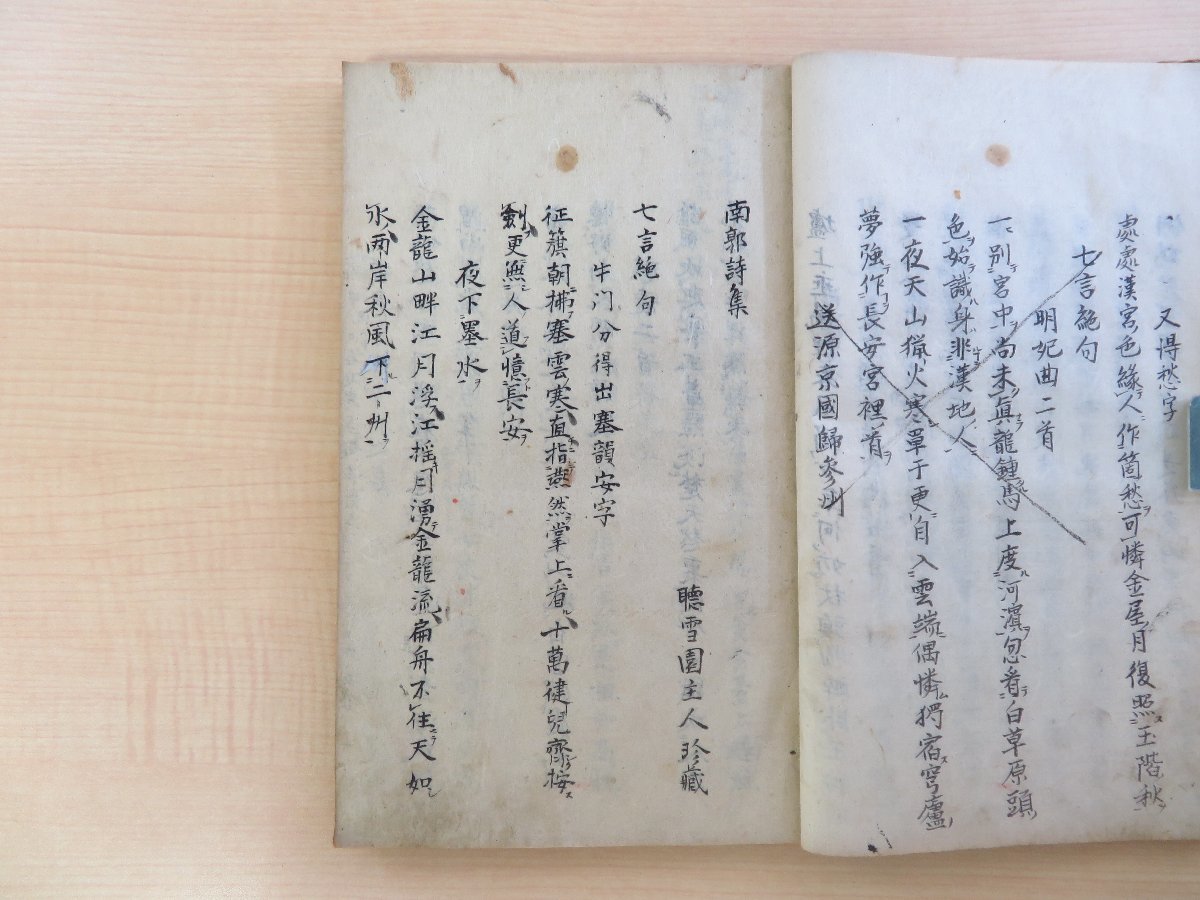 又得愁字
處處漢宮色緣人作箇愁可憐金屋月復照玉階秋
七言絶句
明妃曲二首
一別宮中尚未眞龍鏈馬上度河濵忽看白草原頭
色始識身非漢地人
一夜天山猟火寒單于更自入雲端偶憐獨宿穹廬
夢強作長安宮裡首
送源京國歸參州
南郭詩集
聽雪園主人珍藏
七言絶句
牛门分得出塞韻安字
征籏朝拂塞雲寒直指燕然掌上看十萬健兒齊按
劔更無人道憶長安
夜下墨水
金龍山畔江月浮江揺月湧金龍流扁舟不住天如
水兩岸秋風下二州